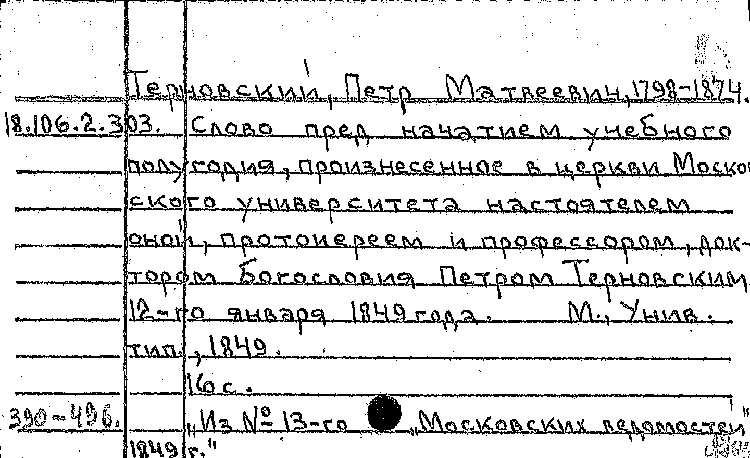 Терновский, Петр Матвеевич, 1798-1874.
18.106.2.303. Слово пред начатием учебного
полугодия, произнесенное в церкви Моско
ского университета настоятелем
оной, протоиереем и профессором, док-
тором Богословия Петром Терновским
12-го января 1849 года. М., Унив.
тип., 1849.
16 с.
390-496. "Из № 13-го "Московских ведомостей"
1849 г."